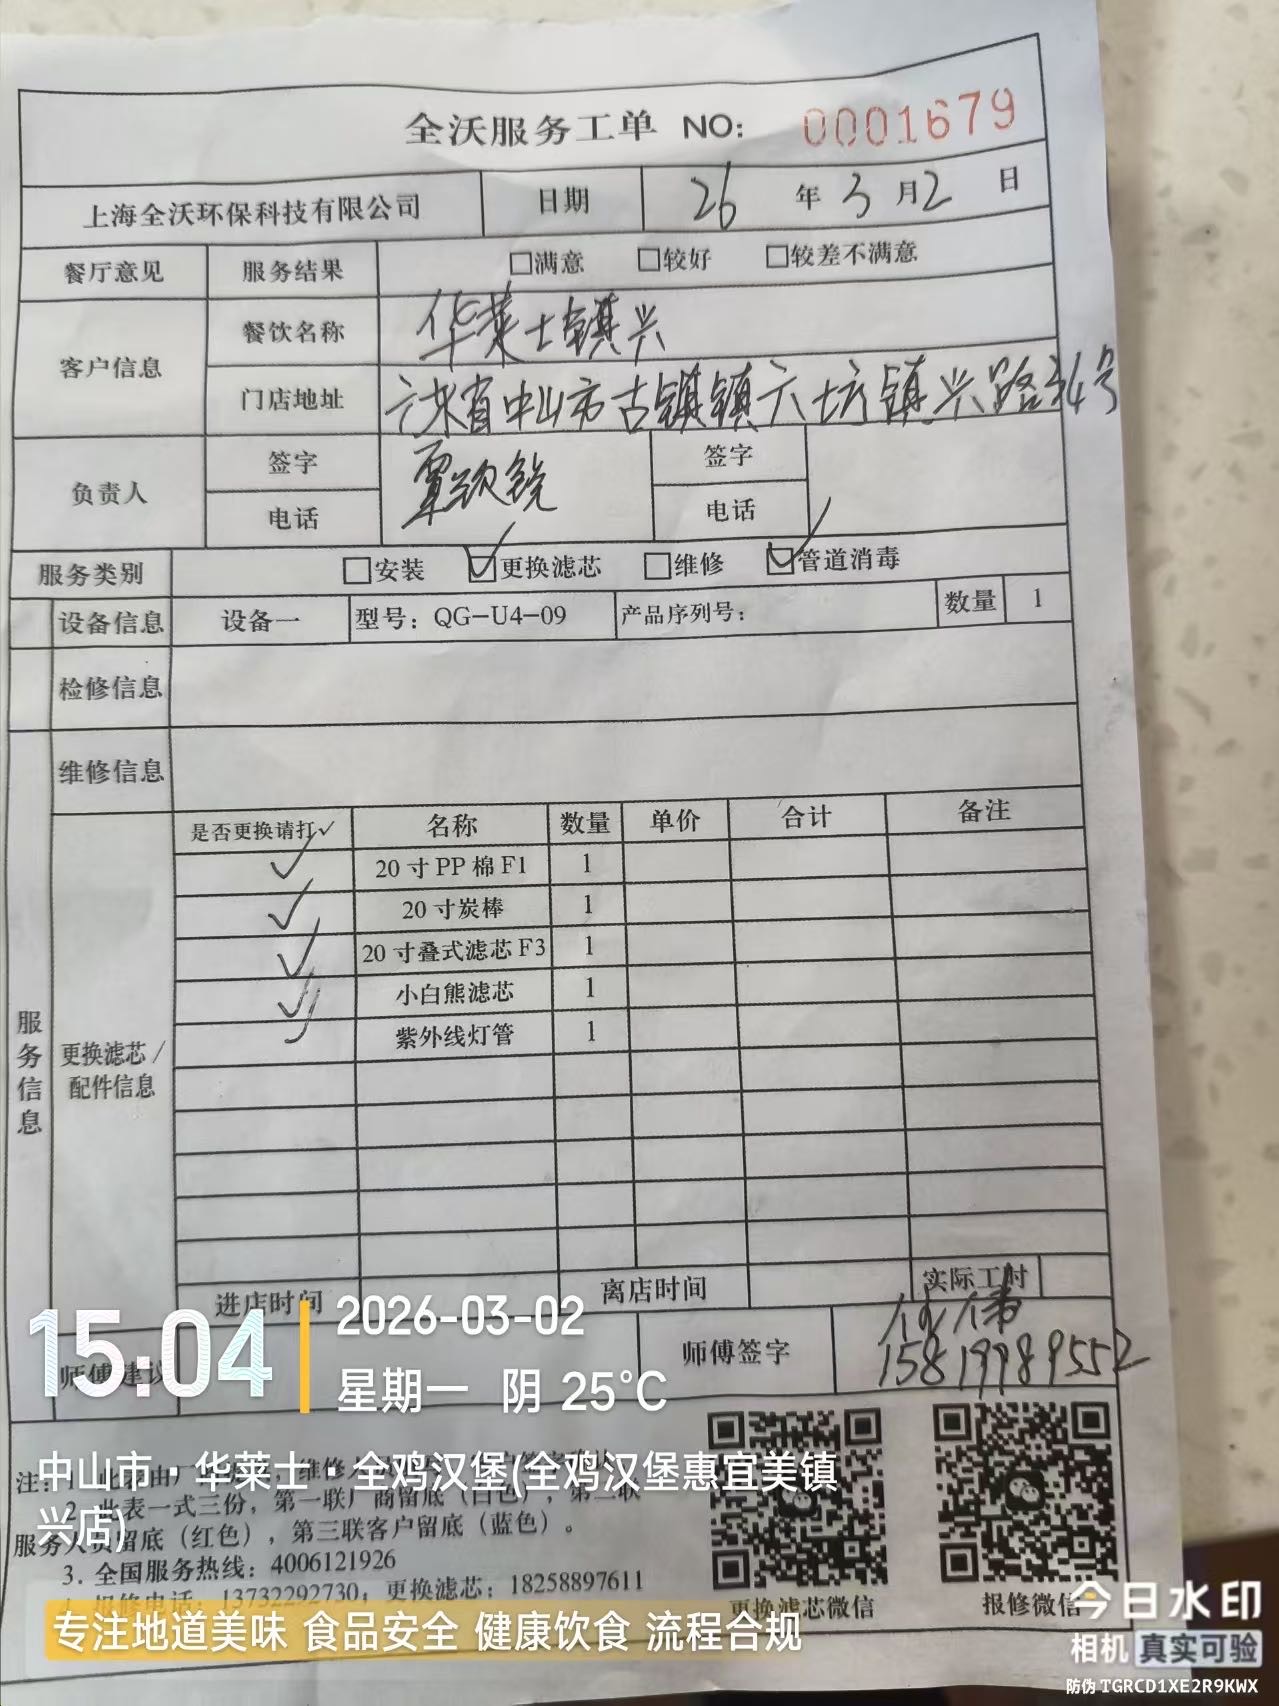 全沃服务工单 NO: 0001679
上海全沃环保科技有限公司 日期 26 年 3 月 2 日
餐厅意见 服务结果 □满意 □较好 □较差不满意
客户信息 餐饮名称 华莱士镇兴
门店地址 广东省中山市古镇镇六坊镇兴路34号
负责人 签字 签字
电话 电话
服务类别 □安装 ☑更换滤芯 □维修 ☑管道消毒
设备信息 设备一 型号：QG-U4-09 产品序列号： 数量 1
检修信息
维修信息
服务信息
更换滤芯/配件信息
是否更换请打✓ 名称 数量 单价 合计 备注
✓ 20寸PP棉F1 1
✓ 20寸炭棒 1
✓ 20寸叠式滤芯F3 1
✓ 小白熊滤芯 1
✓ 紫外线灯管 1
进店时间 离店时间 实际工时
师傅建议 师傅签字
15819989552
15:04
2026-03-02
星期一 阴 25°C
中山市·华莱士·全鸡汉堡(全鸡汉堡惠宜美镇兴店)
注：1. 此表由厂 维修
2. 此表一式三份，第一联厂商留底（白色），第二联
服务人员留底（红色），第三联客户留底（蓝色）。
3. 全国服务热线：4006121926
4. 报修电话：13732292730；更换滤芯：18258897611
更换滤芯微信 报修微信
专注地道美味 食品安全 健康饮食 流程合规
今日水印
相机 真实可验
防伪 TGRCD1XE2R9KWX